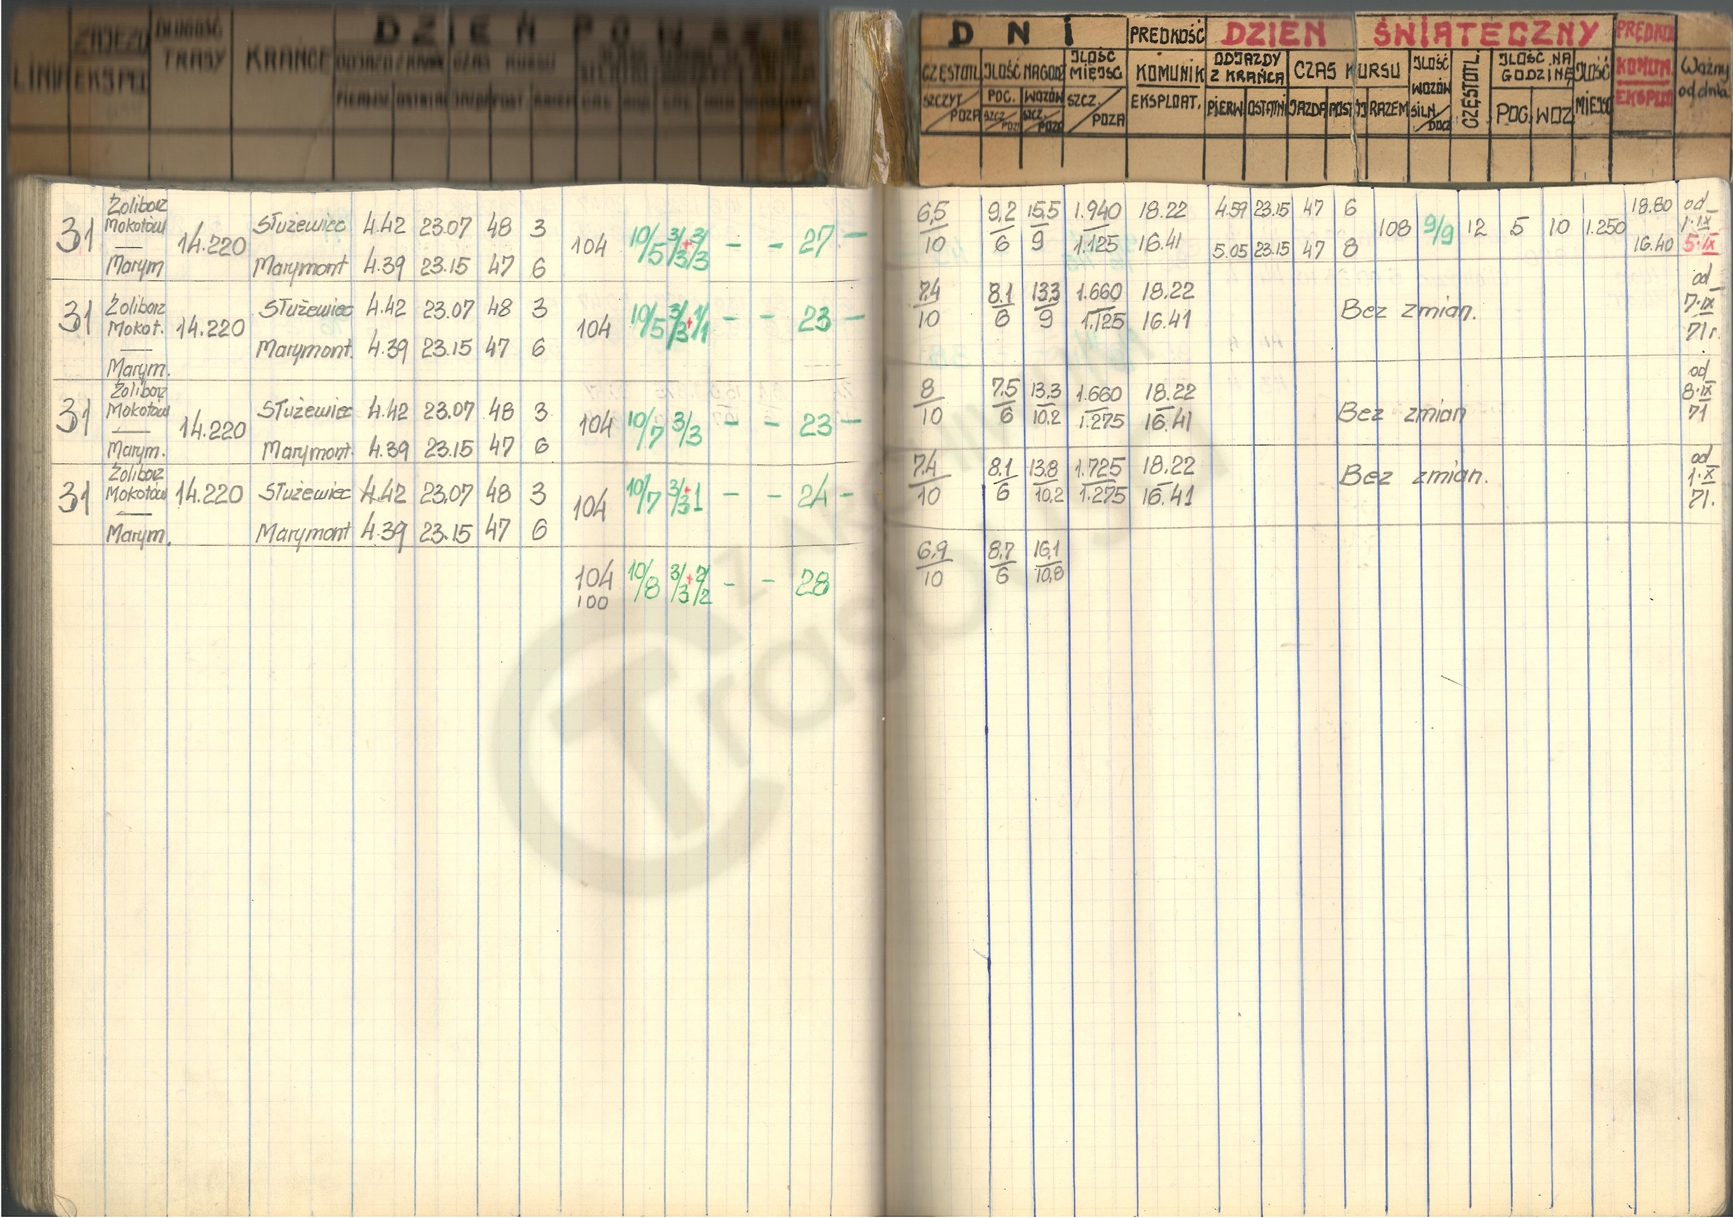 DZIEŃ POWSZE
DNI
PRĘDKOŚĆ
DZIEŃ ŚWIĄTECZNY
LINIA
ZAJEZD
EKSPED
DŁUGOŚĆ
TRASY
KRAŃCE
CZĘSTOTL.
ILOŚĆ NA GODZ
ILOŚĆ MIEJSC
KOMUNIK
EKSPLOAT.
SZCZYT/POZA
POC.
WOZÓW
SZCZ./POZA
ODJAZDY
Z KRAŃCA
CZAS KURSU
PIERW
OSTATNI
JAZDA
POST
RAZEM
ILOŚĆ
WOZÓW
SILN/DOCZ
CZĘSTOTL.
ILOŚĆ NA
GODZINĘ
POC.
WOZ
ILOŚĆ
MIEJSC
KOMUN.
EKSPLO
Ważny
od dnia
31 Żoliborz Mokotów — Marym 14.220
Służewiec 4.42 23.07 48 3
Marymont 4.39 23.15 47 6
104 10/5 3/3+3/3 - - 27 -
6,5/10 9,2/6 15,5/9 1.940/1.125 18.22 16.41
4.59 23.15 47 6
5.05 23.15 47 8
108 9/9 12 5 10 1.250
18.80 16.40
od 1·IX 5·IX
31 Żoliborz Mokot. — Marym. 14.220
Służewiec 4.42 23.07 48 3
Marymont. 4.39 23.15 47 6
104 10/5 3/3+1/1 - - 23 -
7,4/10 8,1/6 13,3/9 1.660/1.125 18.22 16.41
Bez zmian.
od 7·IX 71r.
31 Żoliborz Mokotów — Marym. 14.220
Służewiec 4.42 23.07 48 3
Marymont. 4.39 23.15 47 6
104 10/7 3/3 - - 23 -
8/10 7,5/6 13,3/10,2 1.660/1.275 18.22 16.41
Bez zmian
od 8·IX 71
31 Żoliborz Mokotów — Marym. 14.220
Służewiec 4.42 23.07 48 3
Marymont 4.39 23.15 47 6
104 10/7 3/3+1 - - 24 -
7,4/10 8,1/6 13,8/10,2 1.725/1.275 18.22 16.41
Bez zmian.
od 1·X 71.
104 10/8 3/3+2/2 - - 28
100
6,9/10 8,7/6 16,1/10,8